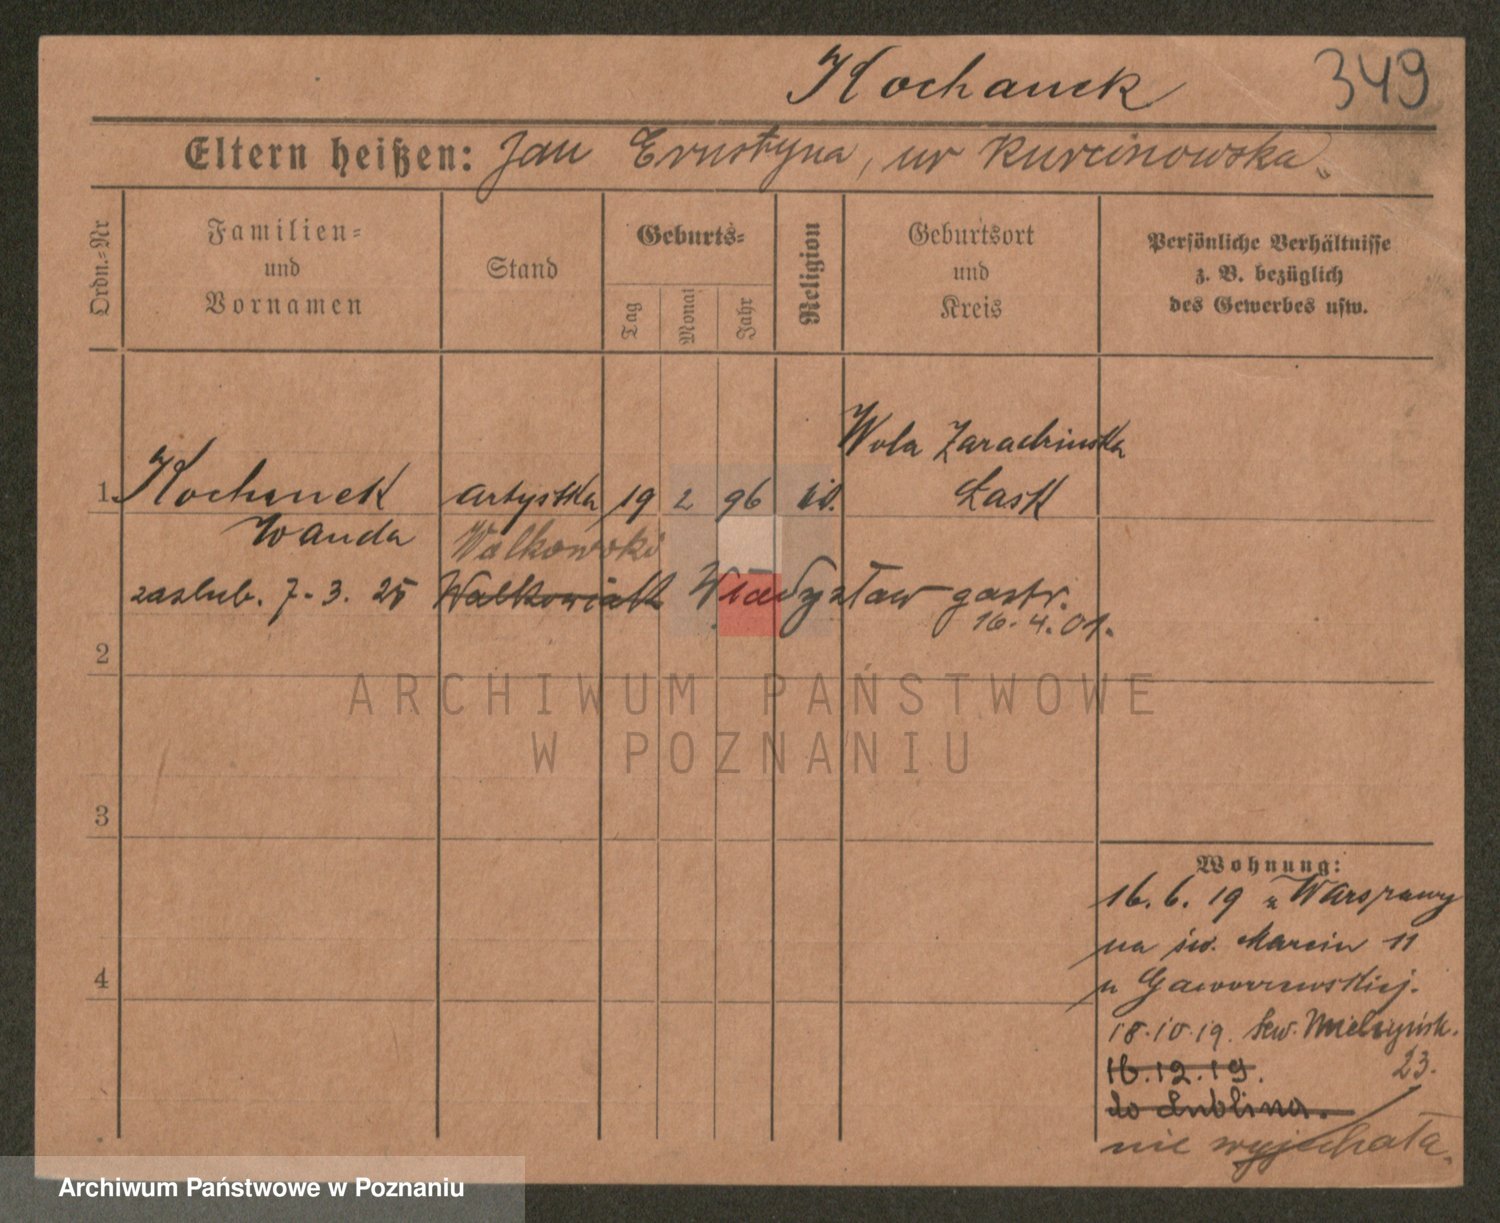 Kochanek 349
Eltern heißen: Jan Ernstyna, ur Kurcinowska
Ordn.-Nr
Familien-
und
Vornamen
Stand
Geburts-
Tag
Monat
Jahr
Religion
Geburtsort
und
Kreis
Persönliche Verhältnisse
z. B. bezüglich
des Gewerbes usw.
Wola Zaradzinska
1 Kochanek artystka 19 2 96 Łask
Wanda Walkowski
zaslub. 7.-3. 25 Walkowiak Władysław gastr.
16.4.01.
2
ARCHIWUM PAŃSTWOWE
W POZNANIU
3
Wohnung:
16.6.19 z Warszawy
na św. Marcin 11
4
u Gaworzewskiej.
18.10.19. Sew. Mielżyńsk.
23.
16.12.19.
do Lublina.
nie wyjechała.
Archiwum Państwowe w Poznaniu